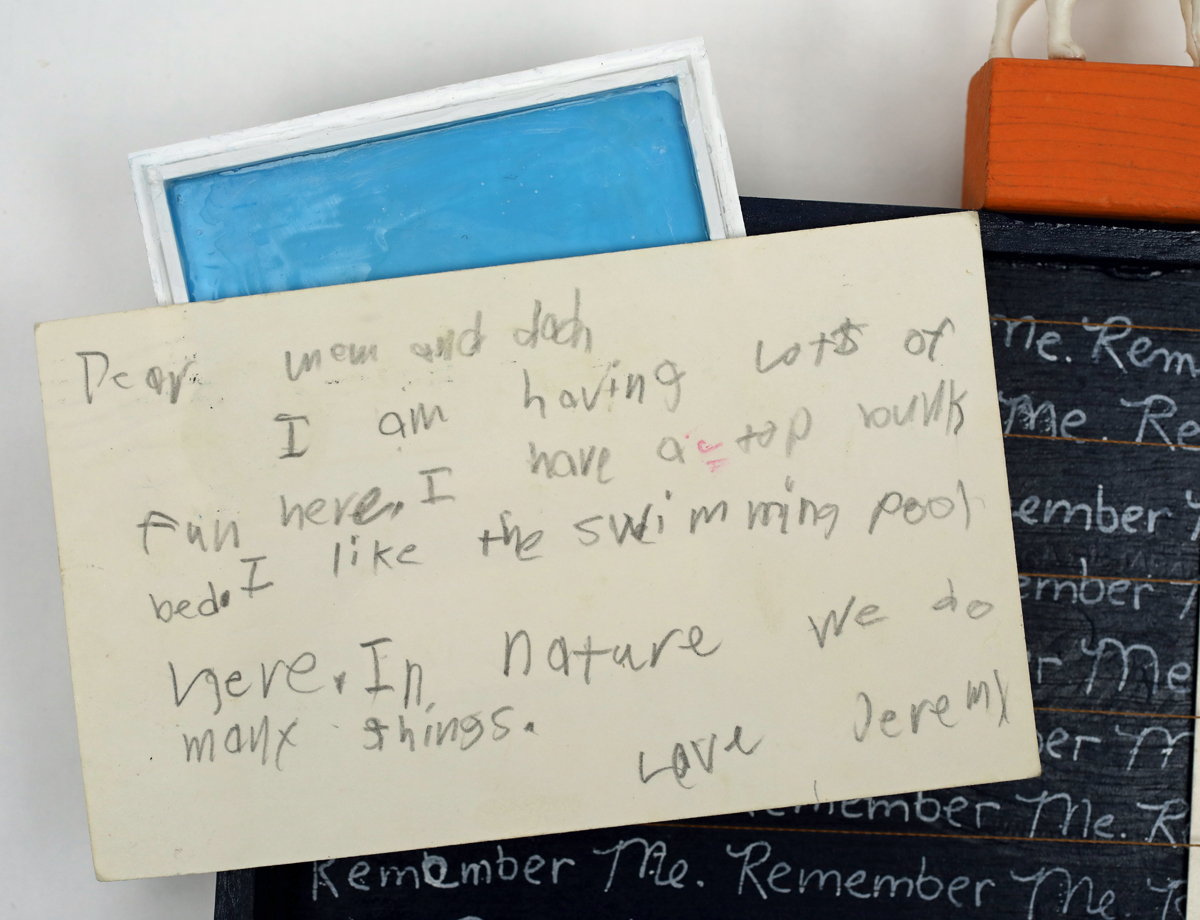 Dear mom and dad
I am having lots of
fun here. I have a top bunk
bed. I like the swimming pool
here. In nature we do
many things.
Love Jeremy
Me. Rem
Me. Re
ember
ember
r Me
ber M
emember Me. R
Remember Me. Remember Me